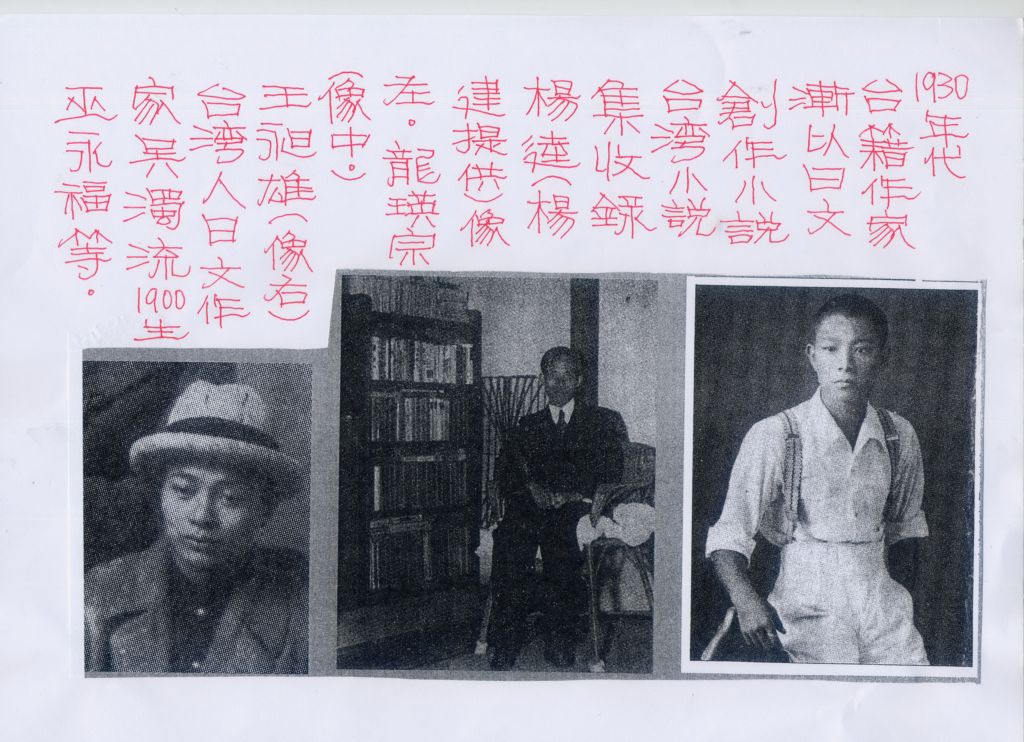 1930年代
台籍作家
漸以日文
創作小説
台湾小説
集收録
楊逵(楊
建提供)像
左。龍瑛宗
(像中。)
王昶雄(像右)
台湾人日文作
家吳濁流1900生
巫永福等。